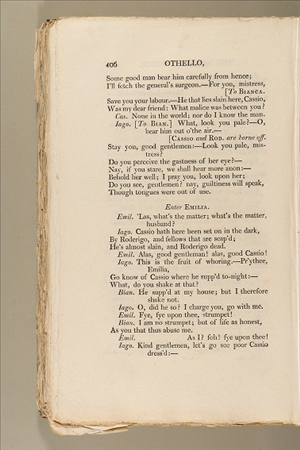 406 OTHELLO,
Some good man bear him carefully from hence;
I'll fetch the general's surgeon.—For you, mistress,
[To BIANCA.
Save you your labour.—He that lies slain here, Cassio,
Was my dear friend: What malice was between you?
Cas. None in the world; nor do I know the man.
Iago. [To BIAN.] What, look you pale?—O,
bear him out o'the air.—
[CASSIO and ROD. are borne off.
Stay you, good gentlemen:—Look you pale, mis-
tress?
Do you perceive the gastness of her eye?—
Nay, if you stare, we shall hear more anon:—
Behold her well; I pray you, look upon her;
Do you see, gentlemen? nay, guiltiness will speak,
Though tongues were out of use.
Enter EMILIA.
Emil. 'Las, what's the matter; what's the matter,
husband?
Iago. Cassio hath here been set on in the dark,
By Roderigo, and fellows that are scap'd;
He's almost slain, and Roderigo dead.
Emil. Alas, good gentleman! alas, good Cassio!
Iago. This is the fruit of whoring.—Pr'ythee,
Emilia,
Go know of Cassio where he supp'd to-night:—
What, do you shake at that?
Bian. He supp'd at my house; but I therefore
shake not.
Iago. O, did he so? I charge you, go with me.
Emil. Fye, fye upon thee, strumpet!
Bian. I am no strumpet; but of life as honest,
As you that thus abuse me.
Emil. As I? foh! fye upon thee!
Iago. Kind gentlemen, let's go see poor Cassio
dress'd:—